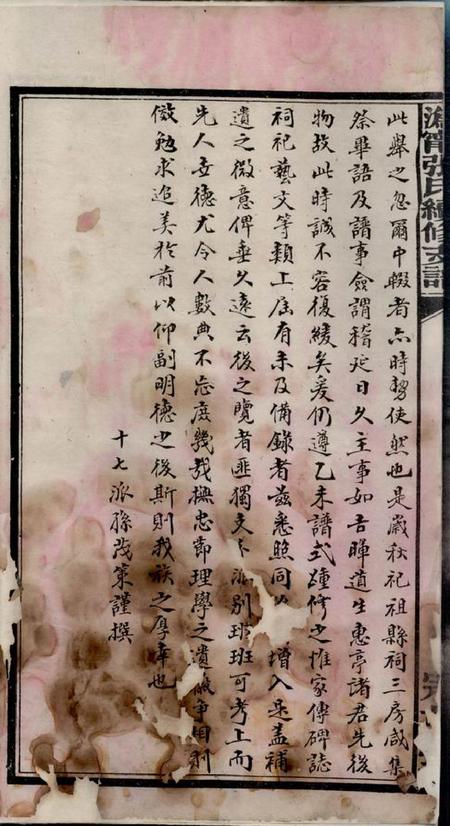 漁甯張氏續修支譜
此舉之忽爾中輟者亦時勢使然也是歲秋祀祖縣祠三房咸集
祭畢語及譜事僉謂稽延日久主事如吾暉道生惠亭諸君先後
物故此時誠不容復緩矣爰仍遵乙未譜式踵修之惟家傳碑誌
祠祀藝文等類上屆有未及備錄者茲悉照同增入是蓋補
遺之微意俾垂久遠云後之覽者匪獨支分派別班班可考上而
先人世德尤令人數典不忘庶幾我撫忠節理學之遺徽爭自刻
儆勉求追美於前以仰副明德之後斯則我族之厚幸也
十七派孫茂策謹撰